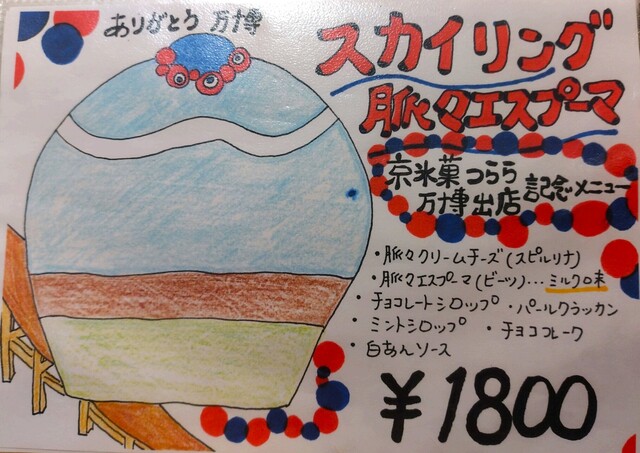 ありがとう 万博
スカイリング
脈々エスプーマ
京氷菓つらら
万博出店
記念メニュー
・脈々クリームチーズ(スピルリナ)
・脈々エスプーマ(ビーツ)…ミルク口味
・チョコレートシロップ ・パールクラッカン
・ミントシロップ ・チョコフレーク
・白あんソース
¥1800